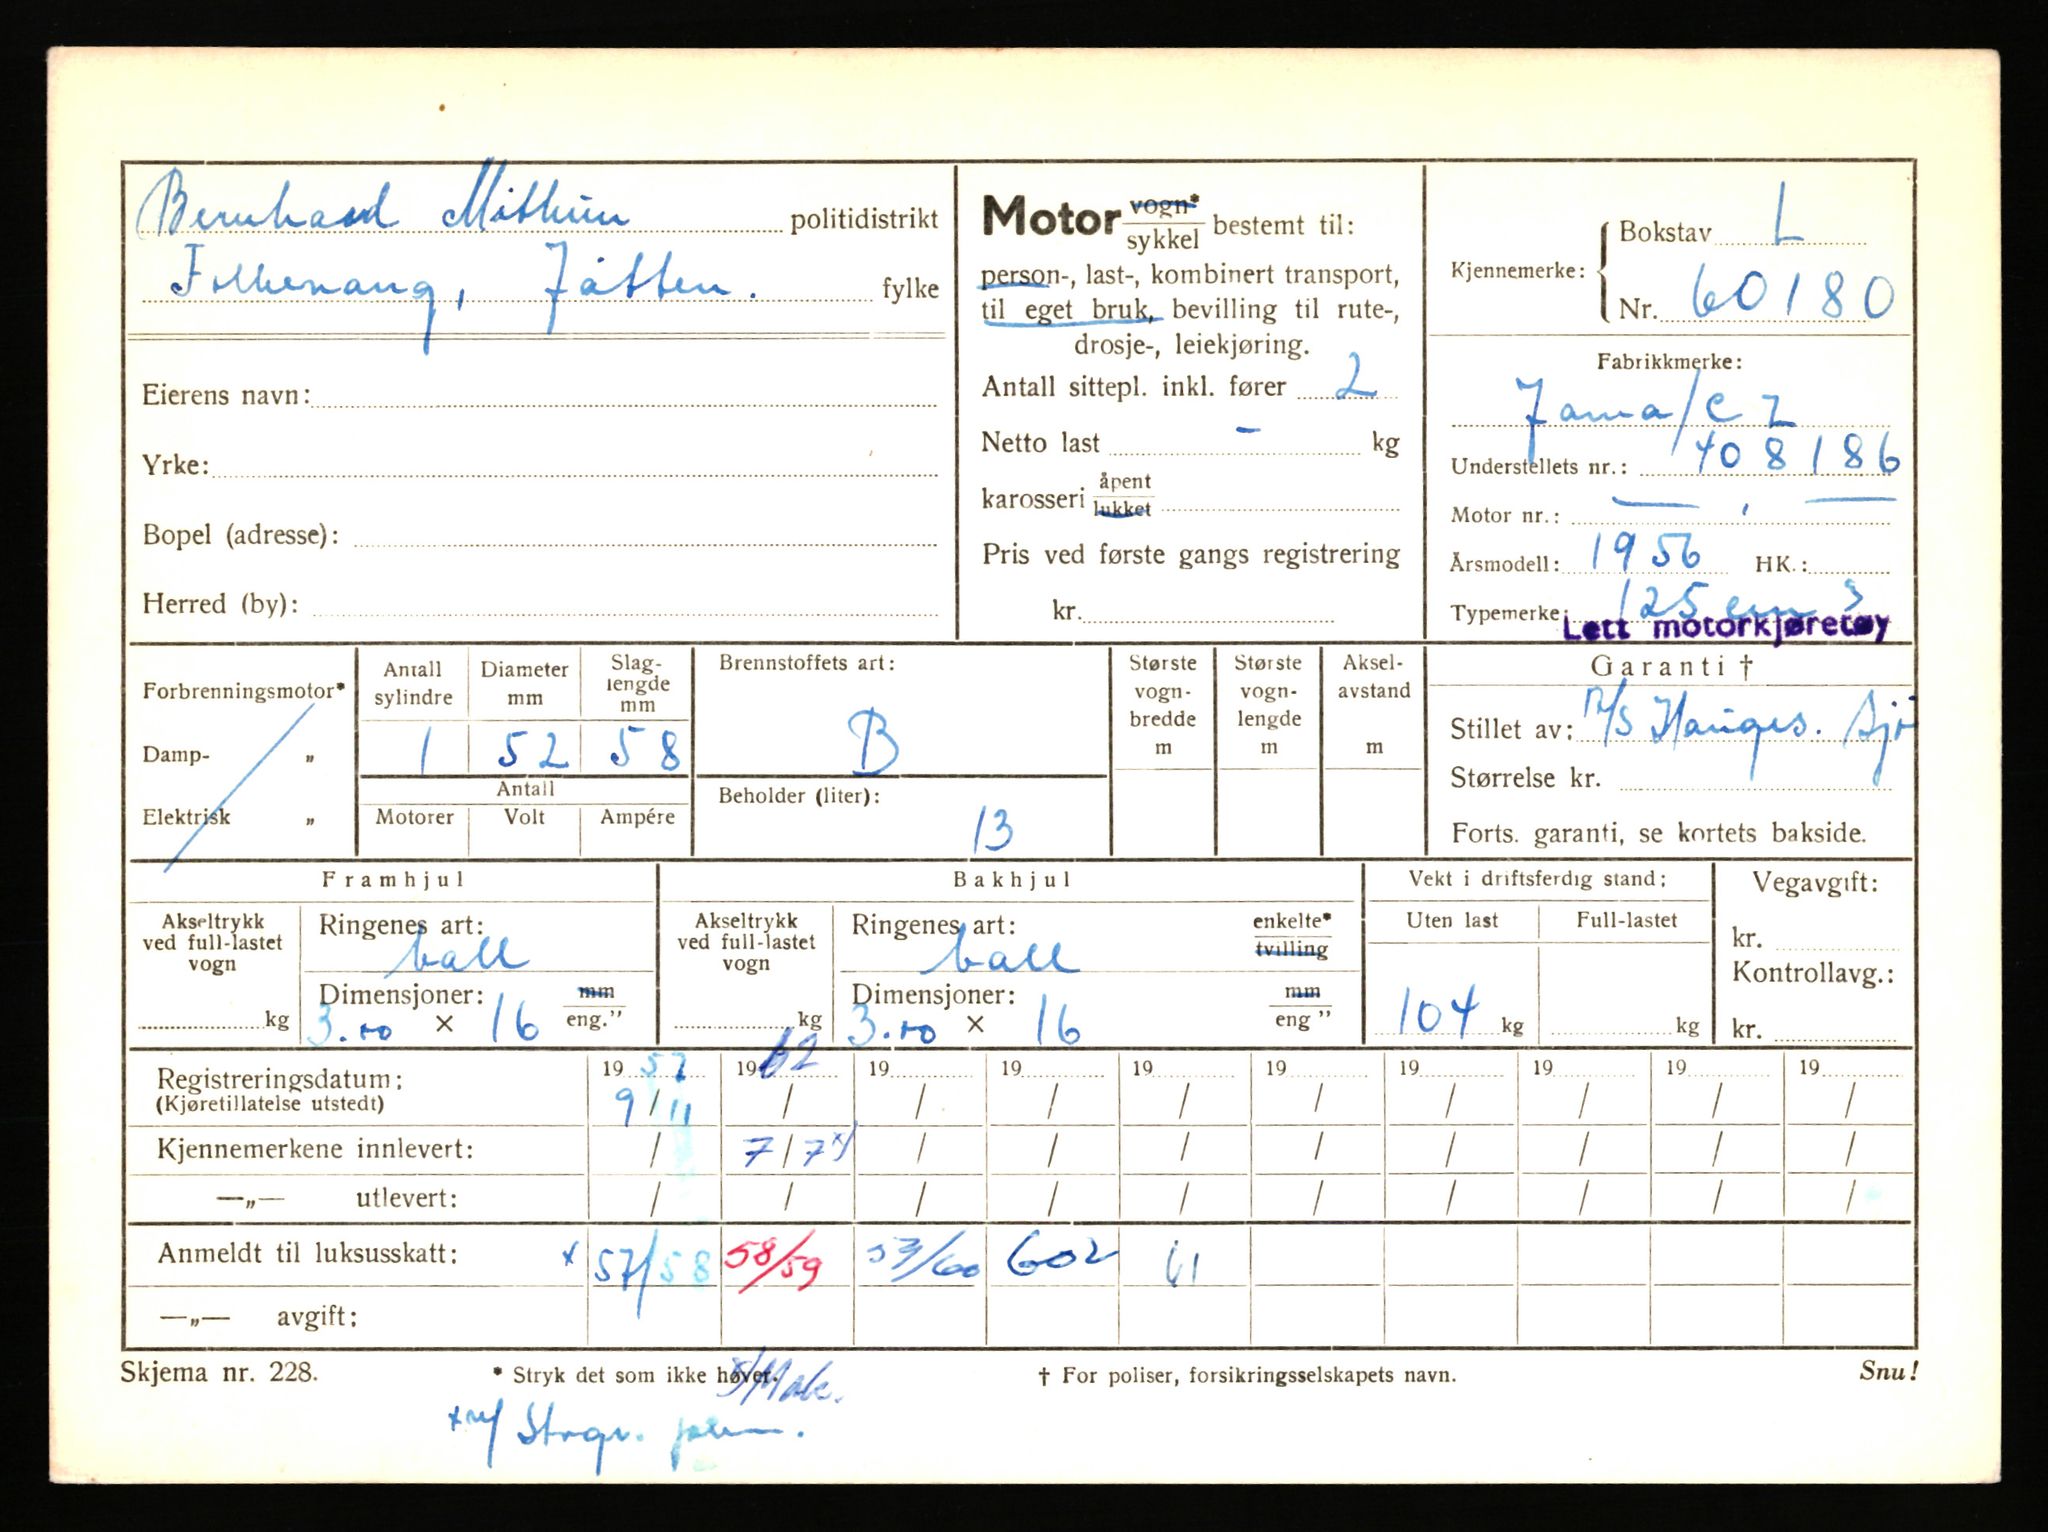 Bernhard Mithun politidistrikt
Jåtten. fylke
Eierens navn:
Yrke:
Bopel (adresse):
Herred (by):
Motor vogn* sykkel bestemt til:
person-, last-, kombinert transport,
til eget bruk, bevilling til rute-,
drosje-, leiekjøring.
Antall sittepl. inkl. fører 2
Netto last - kg
karosseri åpent lukket
Pris ved første gangs registrering
kr.
Kjennemerke: Bokstav L
Nr. 60180
Fabrikkmerke:
Jawa/CZ
Understellets nr.: 408186
Motor nr.: — , —
Årsmodell: 1956 HK.:
Typemerke: 125 cm3
Lett motorkjøretøy
Forbrenningsmotor*
Damp- „
Elektrisk „
Antall sylindre
1
Diameter mm
52
Slag-lengde mm
58
Antall
Motorer Volt Ampére
Brennstoffets art:
B
Beholder (liter):
13
Største vogn-bredde m
Største vogn-lengde m
Aksel-avstand m
Garanti †
Stillet av: A/S Hauges. Sjø
Størrelse kr.
Forts. garanti, se kortets bakside.
Framhjul
Akseltrykk ved full-lastet vogn
kg
Ringenes art:
ball
Dimensjoner: mm
3.00 × 16 eng.”
Bakhjul
Akseltrykk ved full-lastet vogn
kg
Ringenes art: enkelte* tvilling
ball
Dimensjoner: mm
3.00 × 16 eng ”
Vekt i driftsferdig stand:
Uten last Full-lastet
104 kg kg
Vegavgift:
kr.
Kontrollavg.:
kr.
Registreringsdatum: 1957 1962 19 19 19 19 19 19 19 19
(Kjøretillatelse utstedt) 9/11 / / / / / / / / /
Kjennemerkene innlevert: / 7/7 x) / / / / / / / /
—„— utlevert: / / / / / / / / / /
Anmeldt til luksusskatt: x 57/58 58/59 59/60 602 61
—„— avgift:
Skjema nr. 228. * Stryk det som ikke høver. † For poliser, forsikringsselskapets navn. Snu!